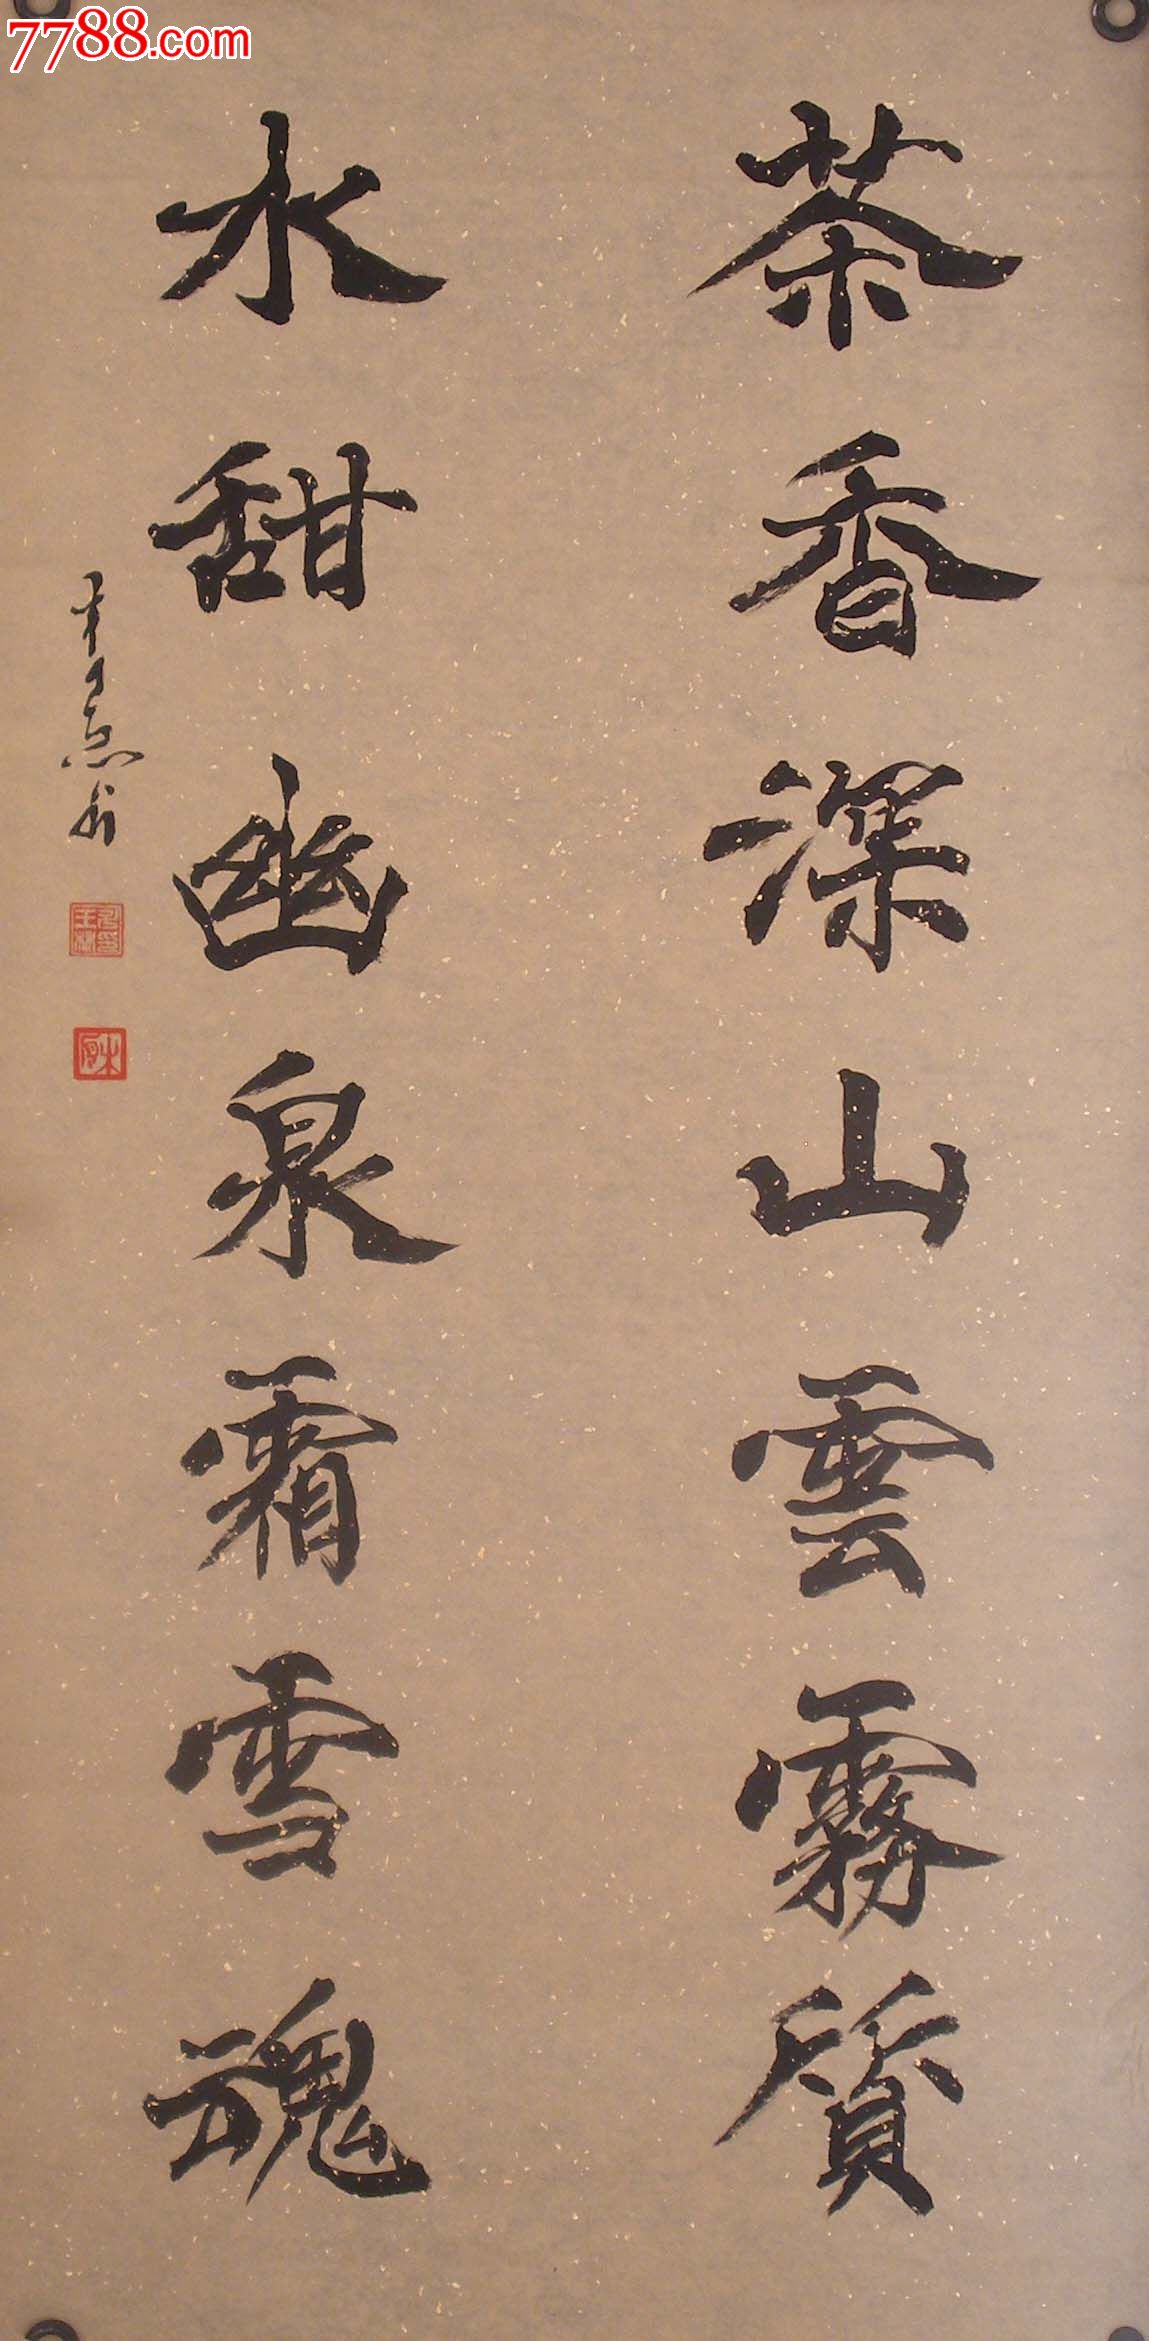 茶香深山雲霧質
水甜幽泉霜雪魂
7788.com